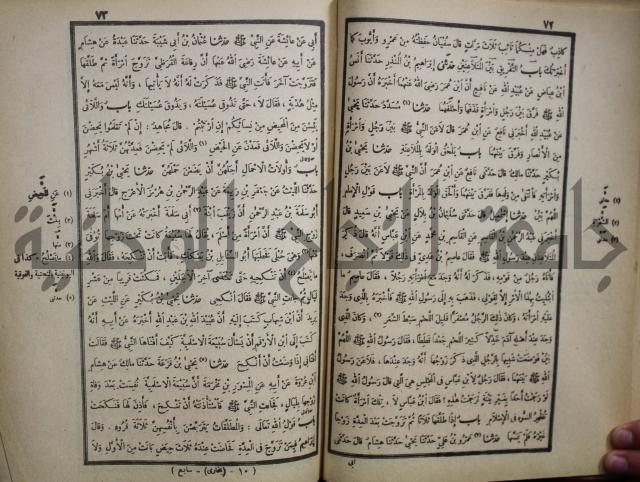 ٧٢
كاذب فهل منكما تائب ثلاث مرات قال سفيان حفظته من عمرو وأيوب كما
أخبرتك باب التفريق بين المتلاعنين حدثني إبراهيم بن المنذر حدثنا أنس
ابن عياض عن عبيد الله عن نافع أن ابن عمر رضى الله عنهما أخبره أن رسول الله
ﷺ فرق بين رجل وامرأة قذفها وأحلفهما حدثنا مسدد حدثنا يحيى
عن عبيد الله أخبرنى نافع عن ابن عمر قال لاعن النبي ﷺ بين رجل وامرأة
من الأنصار وفرق بينهما باب يلحق الولد بالملاعنة حدثنا يحيى
ابن بكير حدثنا مالك قال حدثنى نافع عن ابن عمر أن النبي ﷺ لاعن بين رجل
وامرأته فانتفى من ولدها ففرق بينهما وألحق الولد بالمرأة باب قول الإمام
اللهم بين حدثنا إسمعيل قال حدثنى سليمان بن بلال عن يحيى بن سعيد قال
أخبرنى عبد الرحمن بن القاسم عن القاسم بن محمد عن ابن عباس أنه قال ذكر
المتلاعنان عند رسول الله ﷺ فقال عاصم بن عدى فى ذلك قولا ثم انصرف
فأتاه رجل من قومه فذكر له أنه وجد مع امرأته رجلا ، فقال عاصم ما
ابتليت بهذا الأمر إلا لقولى ، فذهب به إلى رسول الله ﷺ فأخبره بالذى وجد
عليه امرأته ، وكان ذلك الرجل مصفرا قليل اللحم سبط الشعر ، وكان الذى
وجد عند أهله آدم خدلا كثير اللحم جعدا قططا ، فقال رسول الله ﷺ اللهم
بين فوضعت شبيها بالرجل الذى ذكر زوجها أنه وجد عندها ، فلاعن رسول الله
ﷺ بينهما ، فقال رجل لابن عباس فى المجلس هى التى قال رسول الله ﷺ
لو رجمت أحدا بغير بينة لرجمت هذه ، فقال ابن عباس لا ، تلك امرأة كانت
تظهر السوء فى الإسلام باب إذا طلقها ثلاثا ثم تزوجت بعد العدة زوجا
غيره فلم يمسها حدثنا عمرو بن على حدثنا يحيى حدثنا هشام قال حدثنى
أبى
٧٣
أبى عن عائشة عن النبي ﷺ حدثنا عثمان بن أبى شيبة حدثنا عبدة عن هشام
عن أبيه عن عائشة رضى الله عنها أن رفاعة القرظى تزوج امرأة ثم طلقها
فتزوجت آخر فأتت النبي ﷺ فذكرت له أنه لا يأتيها ، وأنه ليس معه إلا
مثل هدبة ، فقال لا ، حتى تذوقى عسيلته ، ويذوق عسيلتك باب واللائى
يئسن من المحيض من نسائكم إن ارتبتم . قال مجاهد : إن لم تعلموا يحضن
أو لا يحضن واللائى قعدن عن الحيض واللائى لم يحضن فعدتهن ثلاثة أشهر
باب وأولات الأحمال أجلهن أن يضعن حملهن حدثنا يحيى بن بكير
حدثنا الليث عن جعفر بن ربيعة عن عبد الرحمن بن هرمز الأعرج قال أخبرنى
أبو سلمة بن عبد الرحمن أن زينب ابنة أبى سلمة أخبرته عن أمها أم سلمة
زوج النبي ﷺ أن امرأة من أسلم ، يقال لها سبيعة كانت تحت زوجها توفى
عنها وهى حبلى فخطبها أبو السنابل بن بعكك فأبت أن تنكحه فقال والله
ما يصلح أن تنكحيه حتى تعتدى آخر الأجلين ، فمكثت قريبا من عشر
ليال ثم جاءت النبي ﷺ فقال انكحى حدثنا يحيى بن بكير عن الليث عن
يزيد أن ابن شهاب كتب إليه أن عبيد الله بن عبد الله أخبره عن أبيه أنه
كتب إلى ابن الأرقم أن يسأل سبيعة الأسلمية كيف أفتاها النبي ﷺ فقالت
أفتانى إذا وضعت أن أنكح حدثنا يحيى بن قزعة حدثنا مالك عن هشام
ابن عروة عن أبيه عن المسور بن مخرمة أن سبيعة الأسلمية نفست بعد وفاة
زوجها بليال ، فجاءت النبي ﷺ فاستأذنته أن تنكح ، فأذن لها فنكحت
باب قول الله تعالى : والمطلقات يتربصن بأنفسهن ثلاثة قروء . وقال
إبراهيم فيمن تزوج فى العدة فحاضت عنده ثلاث حيض بانت من الأول ولا
( ١٠ - (بخارى) - سابع )
(١) عن المحيض
(٢) بنت
جامعة الإمام الوطنية